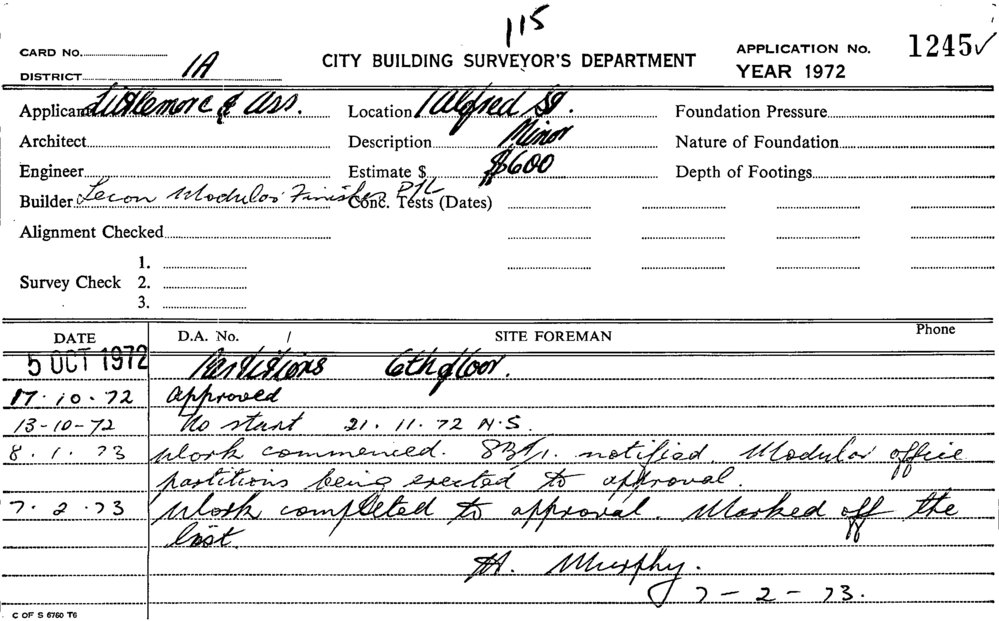 115
CARD No.
DISTRICT 1A
CITY BUILDING SURVEYOR'S DEPARTMENT
APPLICATION No. 1245✓
YEAR 1972
Applicant Littlemore & Ass.
Location 1 Alfred St.
Foundation Pressure
Architect
Description Minor
Nature of Foundation
Engineer
Estimate $ $600
Depth of Footings
Builder Lecon Modular Finishes P/L
Conc. Tests (Dates)
Alignment Checked
Survey Check 1.
2.
3.
DATE D.A. No. / SITE FOREMAN Phone
5 OCT 1972 Partitions 6th floor.
17.10.72 approved
13-10-72 No start 21.11.72 N.S.
8.1.73 Work commenced. notified. Modular office
partitions being erected to approval.
7.2.73 Work completed to approval. Marked off the
list.
H. Murphy.
7-2-73.
C OF S 6760 T6